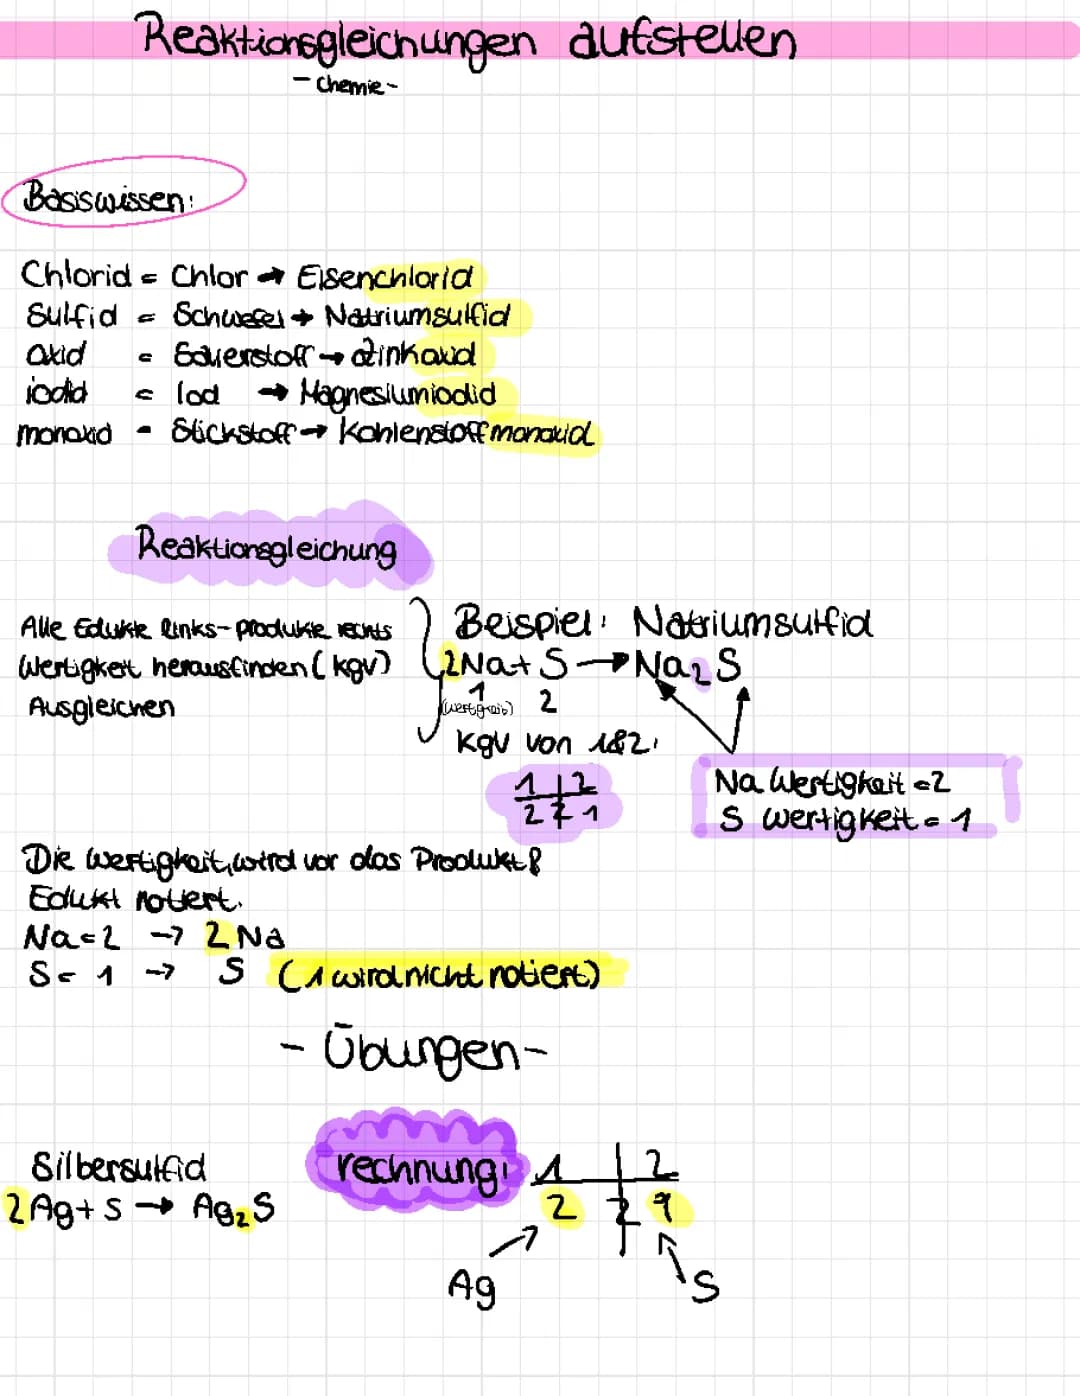 Reaktionsgleichungen aufstellen
- Chemie -
Basiswissen:
Chlorid = Chlor → Eisenchlorid
Sulfid = Schwefel → Natriumsulfid
oxid = Sauerstoff → Zinkoxid
iodid = Iod → Magnesiumiodid
monoxid - Stickstoff → Kohlenstoffmonoxid
Reaktionsgleichung
Alle Edukte links - produkte rechts
Wertigkeit herausfinden (kgv)
Ausgleichen
Beispiel: Natriumsulfid
2Na + S → Na2S
1 2
KgV von 1&2:
1 | 2
2 2 1
Na Wertigkeit = 2
S Wertigkeit = 1
Die Wertigkeit, wird vor das Produkt &
Edukt notiert.
Na = 2 → 2 Na
S = 1 → S (1 wird nicht notiert)
- Übungen -
Silbersulfid
2Ag + S → Ag2S
rechnung:
1 | 2
2 2 1
Ag
S